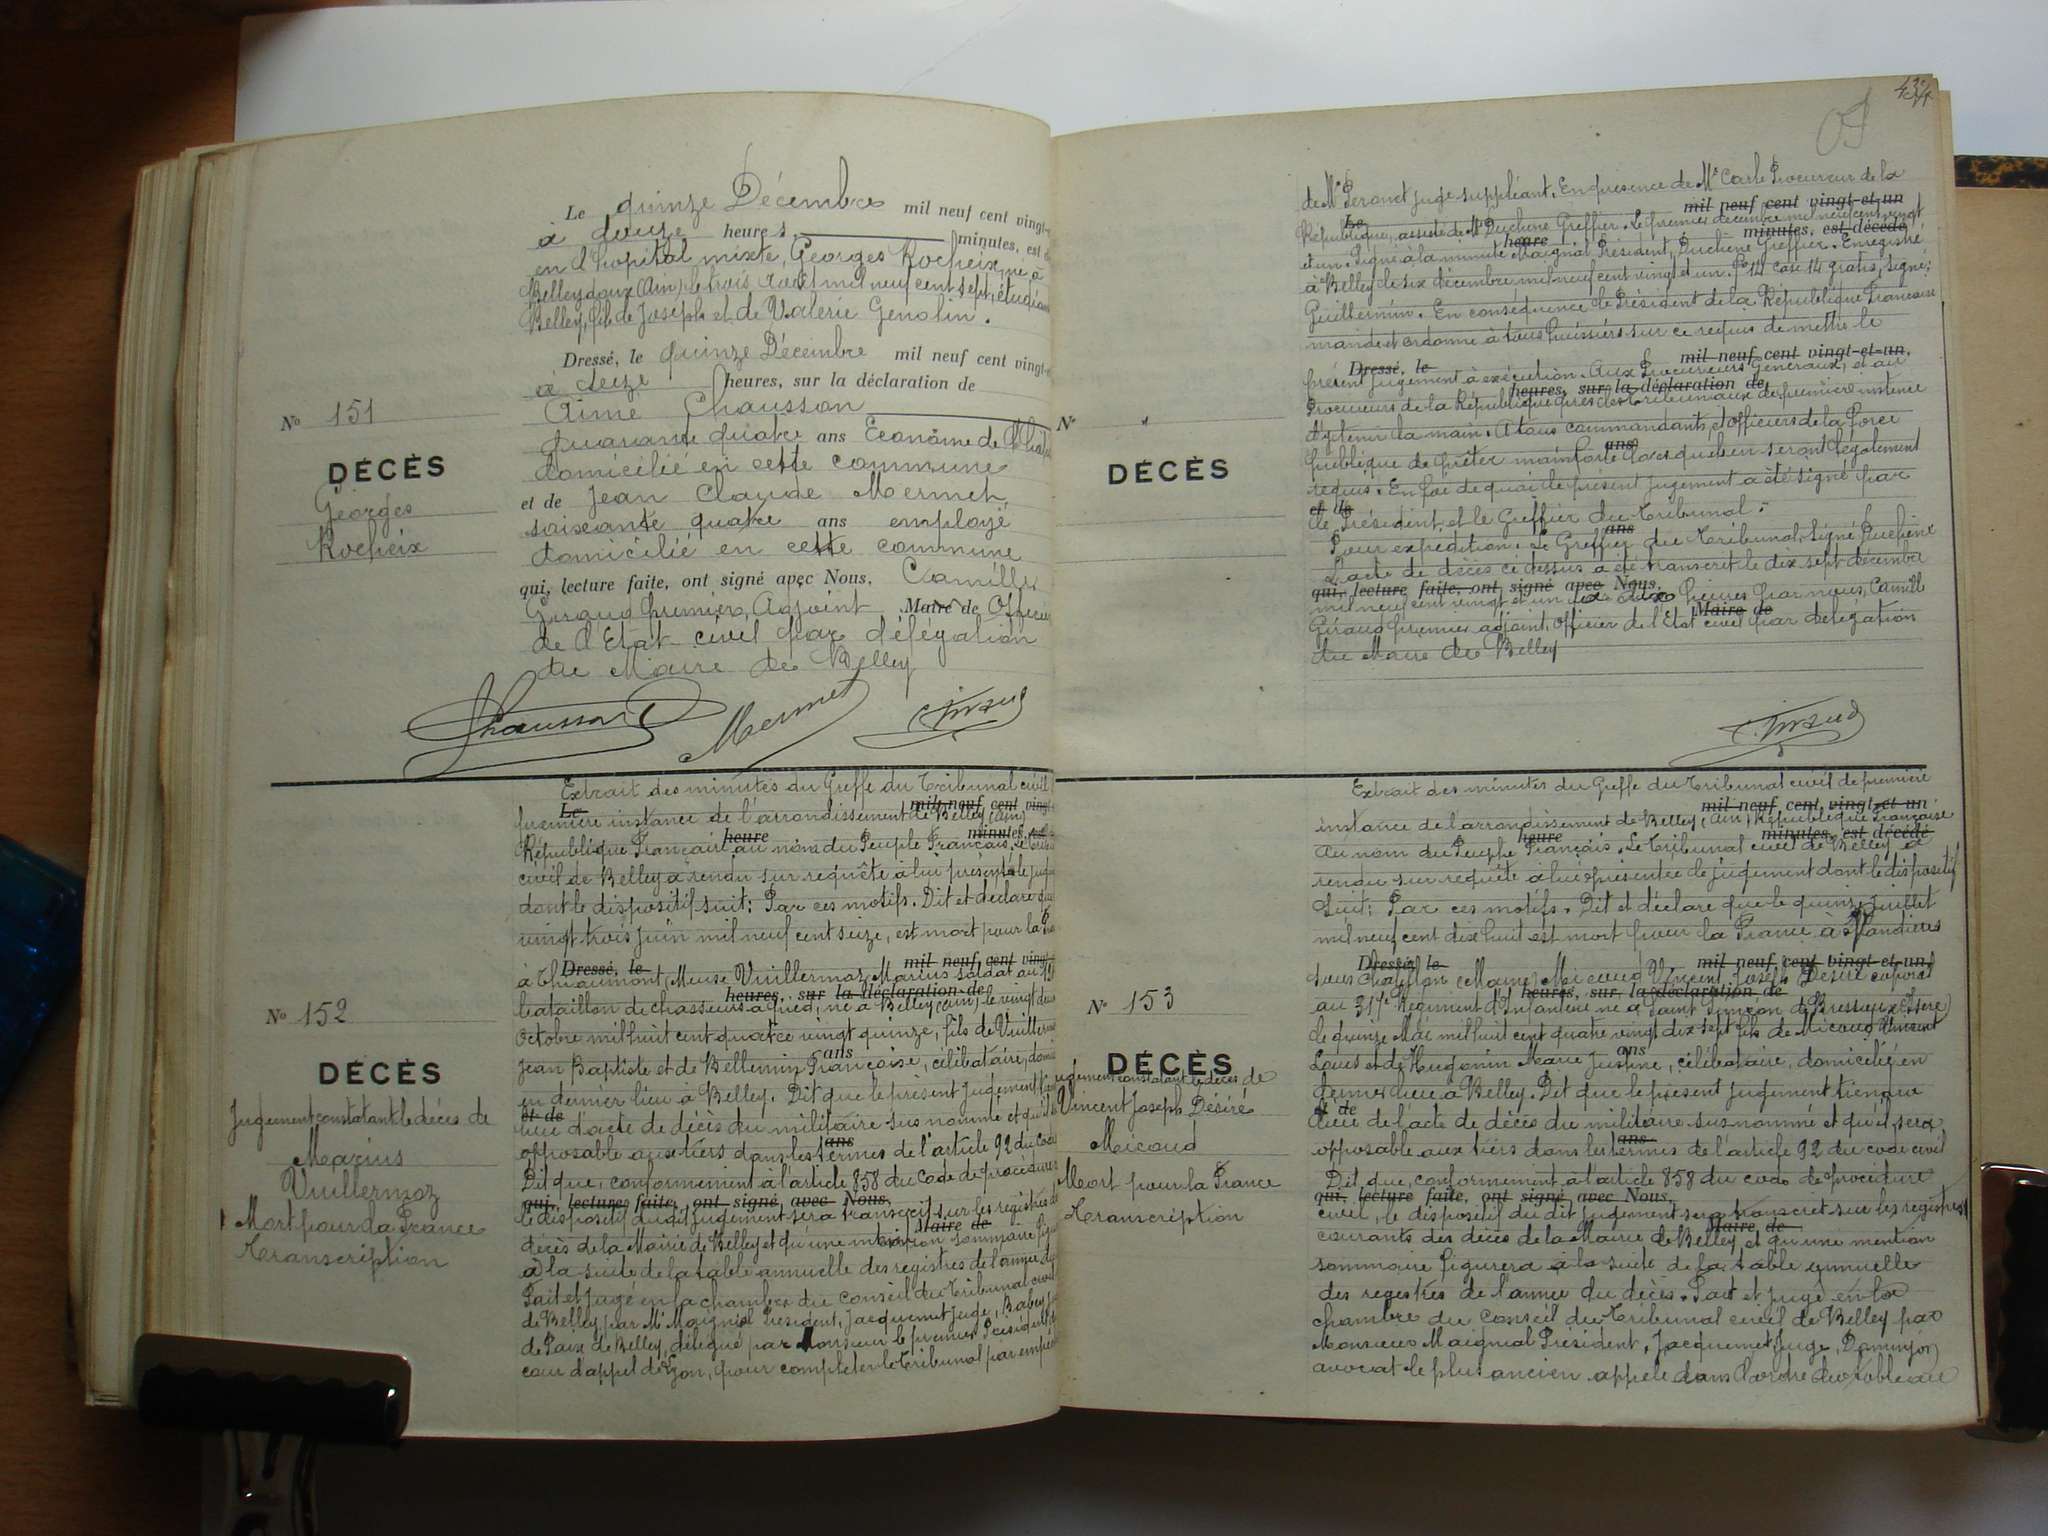 Le quinze Décembre mil neuf cent vingt-
à douze heures minutes, est
en l'hopital mixte, Georges Rocheix, né à
Belleydoux (Ain) le trois Août mil neuf cent sept, étudiant
Belley, fils de Joseph et de Valérie Genolin.
Dressé, le quinze Décembre mil neuf cent vingt-
à seize heures, sur la déclaration de
Aimé Chausson
quarante quatre ans Econome de l'hôp
domicilié en cette commune
et de Jean Claude Mermet,
soixante quatre ans employé
domicilié en cette commune
qui, lecture faite, ont signé avec Nous, Camille
Giraud premier Adjoint Maire de Officier
de l'Etat civil par délégation
du Maire de Belley
No 151
DÉCÈS
Georges
Rocheix
Chausson Mermet Giraud
Extrait des minutes du Greffe du Tribunal civil
Le mil neuf cent vingt-
première instance de l'arrondissement de Belley (Ain)
heure minutes,
République Française au nom du Peuple Français. Le
civil de Belley a rendu sur requête à lui présentée le
dont le dispositif suit: Par ces motifs. Dit et déclare que
vingt trois juin mil neuf cent seize, est mort pour la
Dressé, le mil neuf cent vingt-
à Thiaumont, Meuse Vuillermoz Marius soldat au
heures, sur la déclaration de
bataillon de chasseurs à pied, né à Belley (Ain), le vingt
Octobre mil huit cent quatre vingt quinze, fils de
ans
Jean Baptiste et de Bellemin Françoise, célibataire,
en dernier lieu à Belley. Dit que le présent jugement
et de
lieu d'acte de décès du militaire sus nommé et qu'il
ans
opposable aux tiers dans les termes de l'article 92 du code
Dit que, conformément à l'article 858 du code de procédure
qui, lecture faite, ont signé avec Nous,
le dispositif du dit jugement sera transcrit sur les registres
Maire de
décès de la Mairie de Belley et qu'une mention sommaire
à la suite de la table annuelle des registres de l'année
Fait et jugé en la chambre du conseil du Tribunal civil
de Belley par Mr Maignial Président, Jacquemet Juge, Babey
de Paix de Belley, délégué par Monsieur le premier Président
cour d'appel de Lyon, pour compléter le Tribunal par
No 152
DÉCÈS
Jugement constatant le décès de
Marius
Vuillermoz
Mort pour la France
Transcription
de Mr Peronet juge suppléant. En présence de Mr Carle Procureur de la
Le mil neuf cent vingt-et-un
République, assisté de Mr Duchêne Greffier. Le premier décembre mil neuf cent vingt
heure minutes, est décédé
et un. Signé à la minute Maignal Président, Duchêne Greffier. Enregistré
à Belley le six décembre mil neuf cent vingt et un. Fo 14 case 14 gratis, signé:
Guillermin. En conséquence le Président de la République Française
mande et ordonne à tous huissiers sur ce requis de mettre le
Dressé, le mil neuf cent vingt-et-un,
présent jugement à exécution. Aux Procureurs Généraux, et aux
heures, sur la déclaration de
Procureurs de la République près les Tribunaux de première instance
d'y tenir la main. A tous commandants et officiers de la force
ans
publique de prêter main forte lorsqu'ils en seront légalement
requis. En foi de quoi le présent jugement a été signé par
et de
le Président et le Greffier du Tribunal:
ans
Pour expédition. Le Greffier du Tribunal, signé Duchêne
L'acte de décès ci dessus a été transcrit le dix sept décembre
qui, lecture faite, ont signé avec Nous,
mil neuf cent vingt et un à heures par nous, Camille
Maire de
Giraud premier adjoint, Officier de l'Etat civil par délégation
du Maire de Belley
No
DÉCÈS
Giraud
Extrait des minutes du Greffe du Tribunal civil de première
mil neuf cent vingt-et-un
instance de l'arrondissement de Belley, (Ain) République Française
heure minutes, est décédé
Au nom du Peuple Français. Le Tribunal civil de Belley a
rendu sur requête à lui présentée le jugement dont le dispositif
suit: Par ces motifs. Dit et déclare que le quinze juillet
mil neuf cent dix huit est mort pour la France à Vandières
Dressé, le mil neuf cent vingt-et-un,
sous Chatillon (Marne) Micoud Vincent Joseph Désiré caporal
heures, sur la déclaration de
au Régiment d'Infanterie né à Saint Siméon de Bressieux (Isère)
le quinze Mai mil huit cent quatre vingt dix sept fils de Micoud Vincent
ans
Louis et de Hugonin Marie Justine, célibataire, domicilié en
dernier lieu à Belley. Dit que le présent jugement tiendra
et de
lieu de l'acte de décès du militaire sus nommé et qu'il sera
ans
opposable aux tiers dans les termes de l'article 92 du code civil
Dit que, conformément à l'article 858 du code de procédure
qui, lecture faite, ont signé avec Nous,
civil, le dispositif du dit jugement sera transcrit sur les registres
Maire de
courants des décès de la Mairie de Belley et qu'une mention
sommaire figurera à la suite de la table annuelle
des registres de l'année du décès. Fait et jugé en la
chambre du conseil du Tribunal civil de Belley par
Monsieur Maignial Président, Jacquemet Juge, Dominjon
avocat le plus ancien appelé dans l'ordre du tableau
No 153
DÉCÈS
Jugement constatant le décès de
Vincent Joseph Désiré
Micoud
Mort pour la France
Transcription